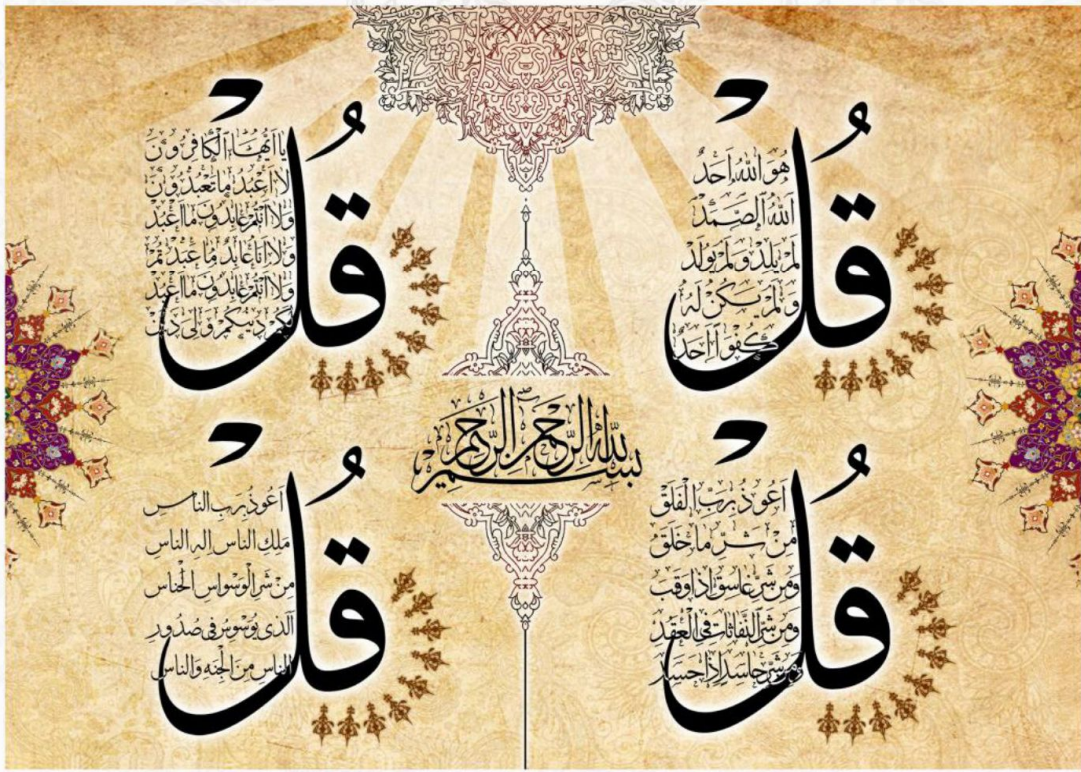 بسم الله الرحمن الرحيم
قُلْ
هو الله احد
الله الصمد
لم يلد ولم يولد
ولم يكن له
كفوا احد
قُلْ
يا ايها الكافرون
لا اعبد ما تعبدون
ولا انتم عابدون ما اعبد
ولا انا عابد ما عبدتم
ولا انتم عابدون ما اعبد
لكم دينكم ولى دين
قُلْ
اعوذ برب الفلق
من شر ما خلق
ومن شر غاسق اذا وقب
ومن شر النفاثات فى العقد
ومن شر حاسد اذا حسد
قُلْ
اعوذ برب الناس
ملك الناس اله الناس
من شر الوسواس الخناس
الذى يوسوس فى صدور
الناس من الجنه والناس